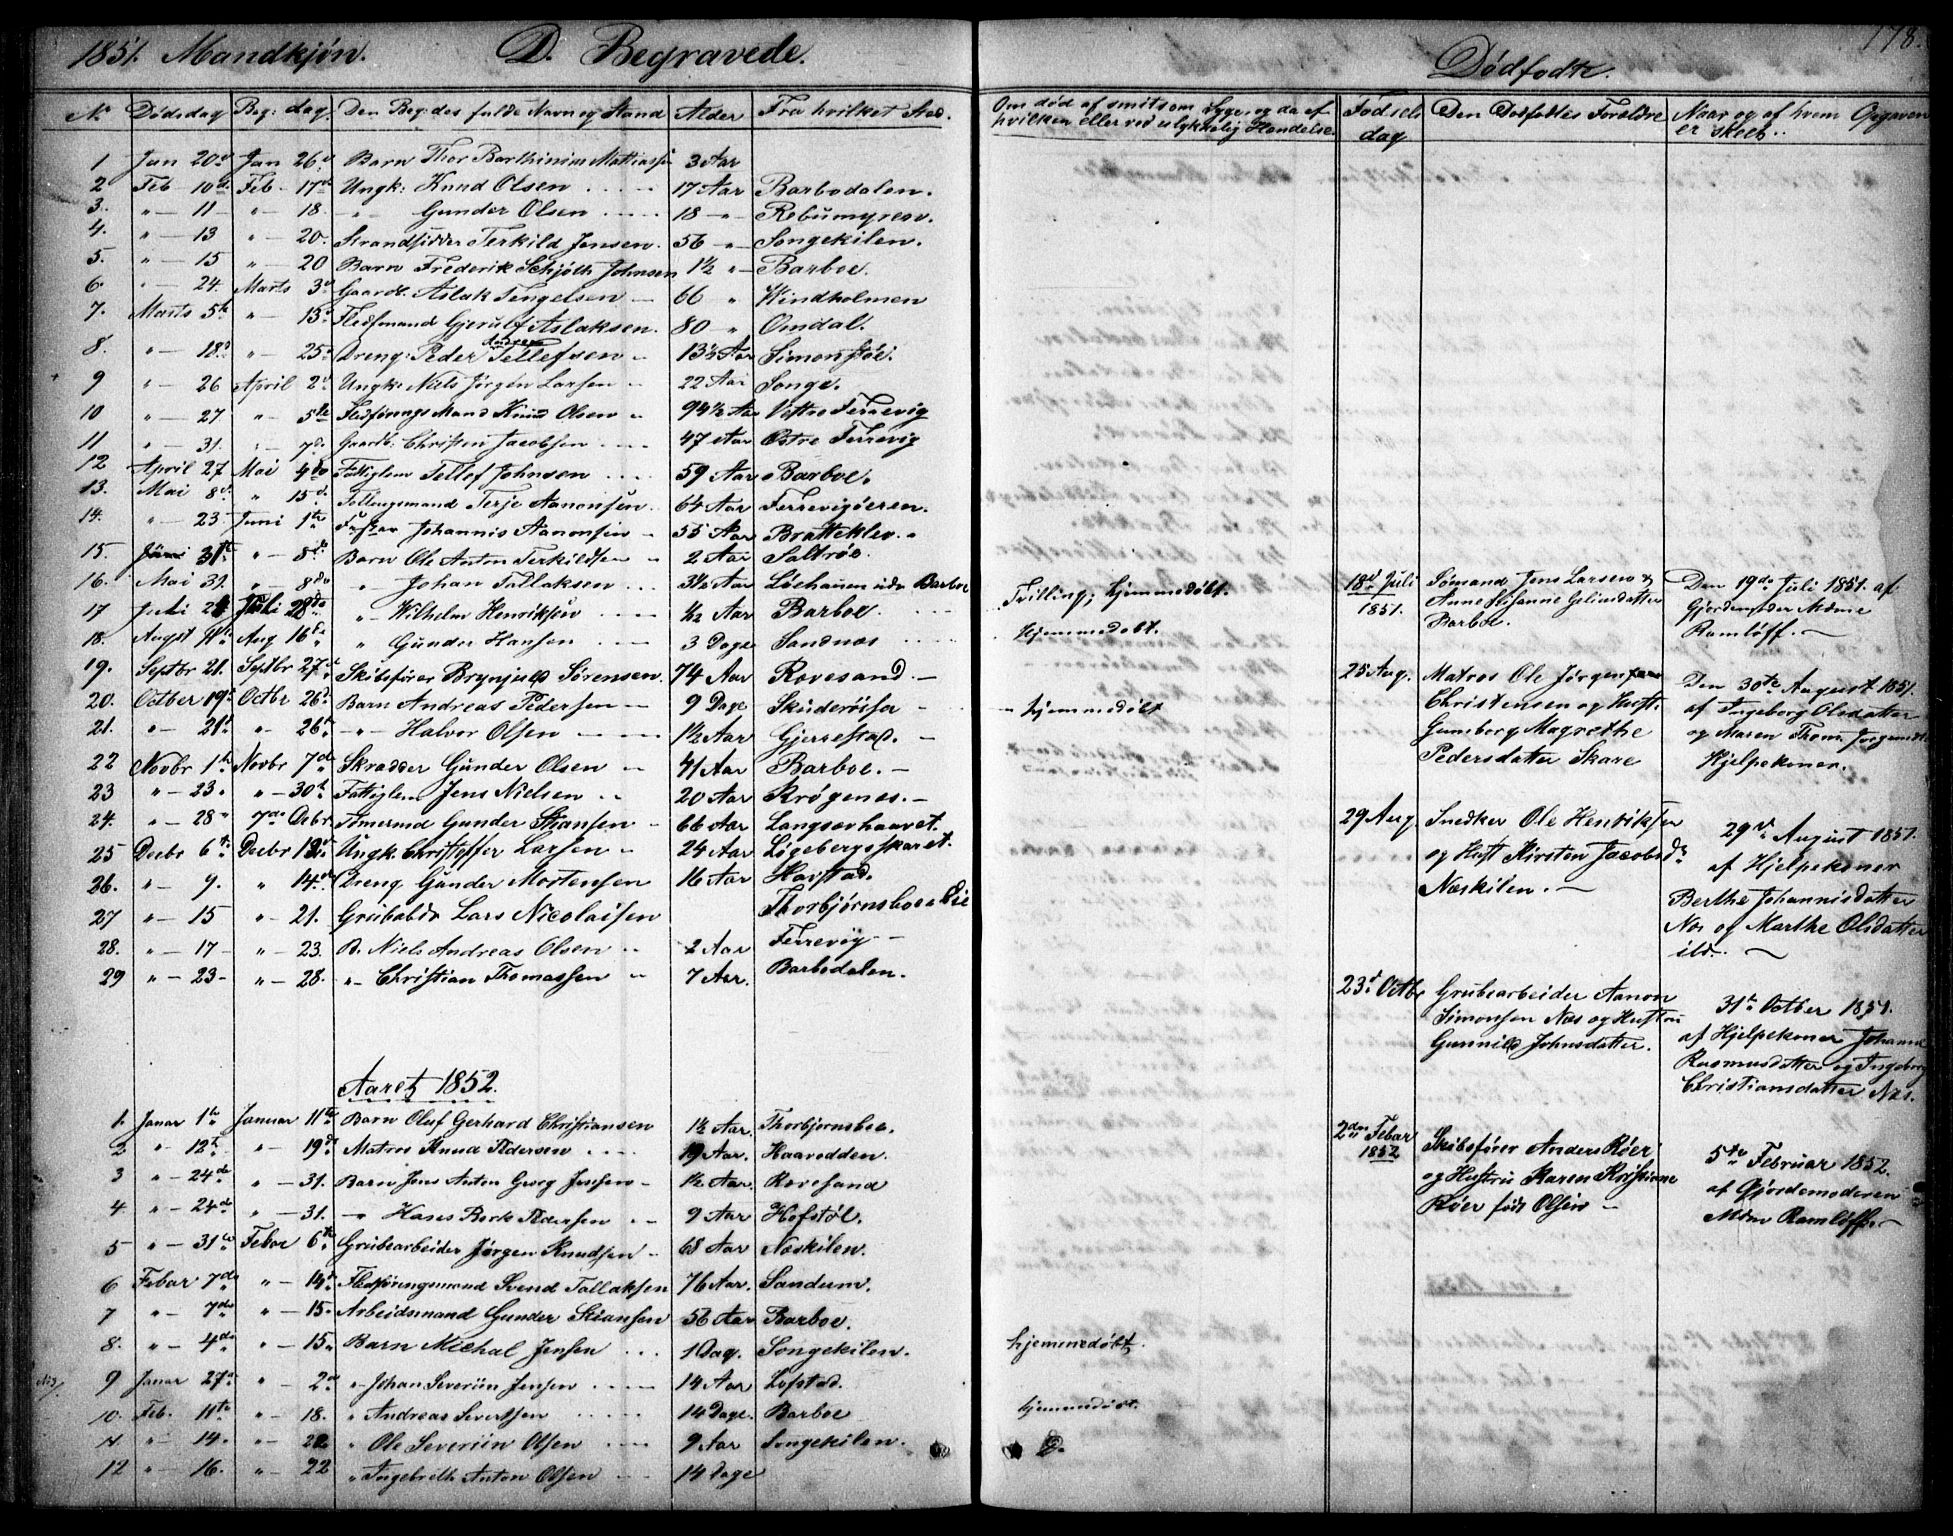 1851. Mandkjøn. D. Begravede.
No Dødsdag Beg: dag. Den Beg:des fulde Navn og Stand Alder Fra hvilket Sted.
1 Jan 20de Jan 26de Barn Thor Barthinius Mathiassen 3 Aar
2 Feb 10de Feb 17de Ungk: Knud Olsen 17 Aar Barbodalen.
3. " 11 " 18. " Gunder Olsen 18 " Rebumyrene.
4. " 13 " 20. Strandsidder Terkild Jensen. 56 " Songekilen.
5. " 15 " 20 Barn Frederik Schjøth Johnsen 1½ " Barboe.
6. " 24. Marts 3de Gaardb. Aslak Tengelsen 66 " Windholmen
7. Marts 5te " 13de Ledsmand Gjerulf Aslaksen. 80 " Omdal.
8. " 18de " 25de Dreng: Peder Tellefsen 13½ Aar Simonstøe.
9 " 26 April 2de Ungk: Niels Jørgen Larsen 22 Aar Songe.
10 " 27 " 5te Ledførings Mand Knud Olsen 94½ Aar Vestre Ferrevig
11 " 31. " 7de Gaardb: Christen Jacobsen 47 Aar Østre Ferrevig
12 April 27 Mai 4de Fattiglem Tellef Johnsen 59 Aar Barboe.
13. Mai 8de " 15de Terje Aanonsen 64 Aar Ferrevigøeren.
14. " 23. Juni 1te Johannis Aanonsen 55 Aar Bratteklev.
15. 31te " 8de Barn Ole Anton Terkildsen 2 Aar Saltrøe.
16. Mai 31. " 8de " Johan Tallaksen 3½ Aar Barboe
17 Juli 24 Juli 28de " Wilhelm Henriksen ½ Aar Barboe.
18. Augst 11te Aug 16de " Gunder Hansen 3 Dage Sandnæs
19. Septbr 21. Septbr 27de Skibsfører Brynjuld Sørensen. 74 Aar Rovesand.
20. Octber 19de Octbr 26de Barn Andreas Pedersen 9 Dage Skuderøiser
21. " 21de " 26de " Halvor Olsen 1½ Aar Gjerrestad.
22 Novbr 1te Novbr 7de Skrædder Gunder Olsen 41 Aar Barboe.
23 " 23. " 30te Fattiglem Jens Nielsen 20 Aar Krøgenes.
24. " 28 7de Decbr Tømermd Gunder Stiansen 66 Aar Langsævhaavet.
25 Decbr 6te Decbr 13de Ungk. Christoffer Larsen 24 Aar Løgebergsskaret.
26. " 9. " 14de Dreng Gunder Mortensen 16 Aar Havstad.
27 " 15 " 21. Lars Nicolaisen Thorbjørnsboe
28. " 17 " 23. B. Niels Andreas Olsen 2 Aar Ferrevig
29 " 23 " 28. " Christian Thomassen 7 Aar. Barbodalen.
Aaret 1852.
1. Januar 1te Januar 11te Barn Oluf Gerhard Christiansen 1½ Aar. Thorbjornsboe.
2 " 12te " 19de Matros Knud Pedersen 19 Aar. Haavodden.
3 " 24de " 31. Barn Jens Anton Georg Jensen 1½ Aar. Rovesand
4 " 24de " 31. " Hans Bork Pedersen 9 Aar Hofstøl.
5 " 31te Febor 6te Grubearbeider Jørgen Knudsen 68 Aar Næskilen.
6 Febar 7de " 14de Ledføringsmand Svend Tallaksen 76 Aar. Sandum.
7 " 7de " 15. Arbeidsmand Gunder Stiansen 56 Aar Barboe.
8. " 4de " 15. Barn Michal Jensen 1 Dag. Songekilen.
9 Janar 27de " 2de " Johan Severin Jensen 14 Aar Lofstad.
10. Feb. 11te " 18. " Andreas Severtsen 14 Dage. Barboe
11 " 14. " 22 " Ole Severiin Olsen 9 Aar Songekilen.
12 " 16. " 22 " Ingebreth Anton Olsen 14 Dage
178.
Dødfødte.
Om død af smitsom Syge, og da af hvilken eller ved ulykkelig Hændelse. Fødsels dag Den Dødfødtes Forældre Naar og af hvem Opgaven er skeet.
Tvilling; hjemmedøbt.
Hjemmedøbt.
hjemmedøbt
hjemmedøbt.
hjemmedøbt.
18de Juli
1851.
Sømand Jens Larsen &
Anne Stefanne Gelinsdatter
Barboe.
Den 19de Juli 1851. af
Gjordemoder Mdme
Ramløff.
25 Aug.
Matros Ole Jørgen
Christensen og Hust.
Gunborg Magrethe
Pedersdatter Skare
Den 30te August 1851.
af Ingeborg Olsdatter
og Maren Thom. Jørgensdt
Hjelpekoner.
29 Aug
Snedker Ole Henriksen
og Hust Kirsten Jacobsdr
Næskilen.
29de August 1851.
af Hjelpekoner
Berthe Johannisdatter
Næs og Marthe Olsdatter
ibd.
23de Octbr
Grubearbeider Aanon
Simonsen Næs og Hustru
Gunnild Johnsdatter.
31te Octber 1851.
af Hjelpekoner Johanne
Rasmusdatter og Ingeborg
Christiansdatter Næs.
2den Febar
1852
Skibsfører Anders Røer
og Hustru Karen Kristine
Røer født Olsen
5te Februar 1852.
af Gjordemoderen
Mdm Ramløff.